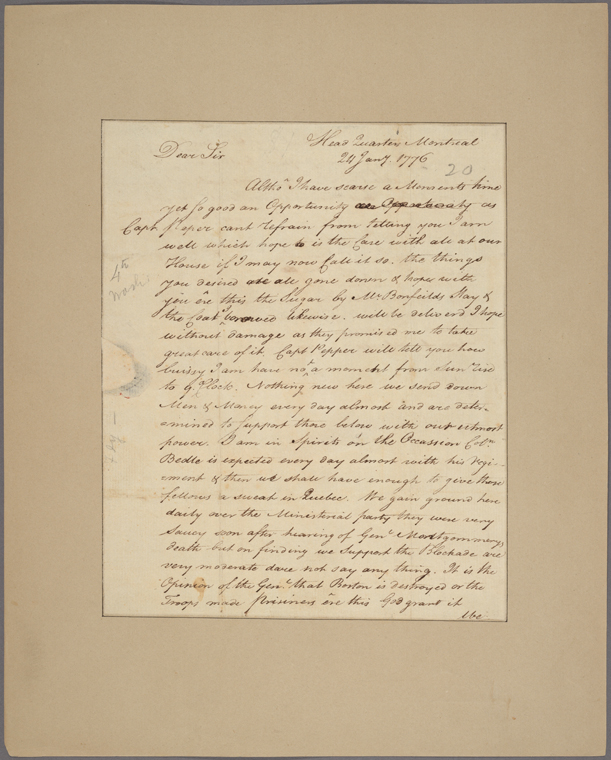 Head Quarters Montreal
24 Jany. 1776
20
Dear Sir
Altho' I have scarse a Moments time
yet so good an Opportunity as
Capt Pepper cant refrain from telling you I am
well which hope is the Case with all at our
House if I may now Call it so. the things
you desired all gone down & hope with
you ere this the Sugar by Mr Bonfeilds Slay &
the likewise. will be deliverd I hope
without damage as they promised me to take
great care of it. Capt Pepper will tell you how
buissy I am have not a moment from Sun rise
to 9 oClock. Nothing new here we send down
Men & Money every day almost and are deter-
emined to support those below with our utmost
power. I am in Spirits on the Occassion Coln.
Bedle is expected every day almost with his regi-
ment & then we shall have enough to give those
fellows a sweat in Quebec. We gain ground here
daily over the Ministerial party they were very
Saucy soon after hearing of Genl Montgommerys
death but on finding we Support the Blockade are
very moderate dare not say any thing. It is the
Opinion of the Genl. that Boston is destroyed or the
Troops made Prisiners ere this God grant it
4th